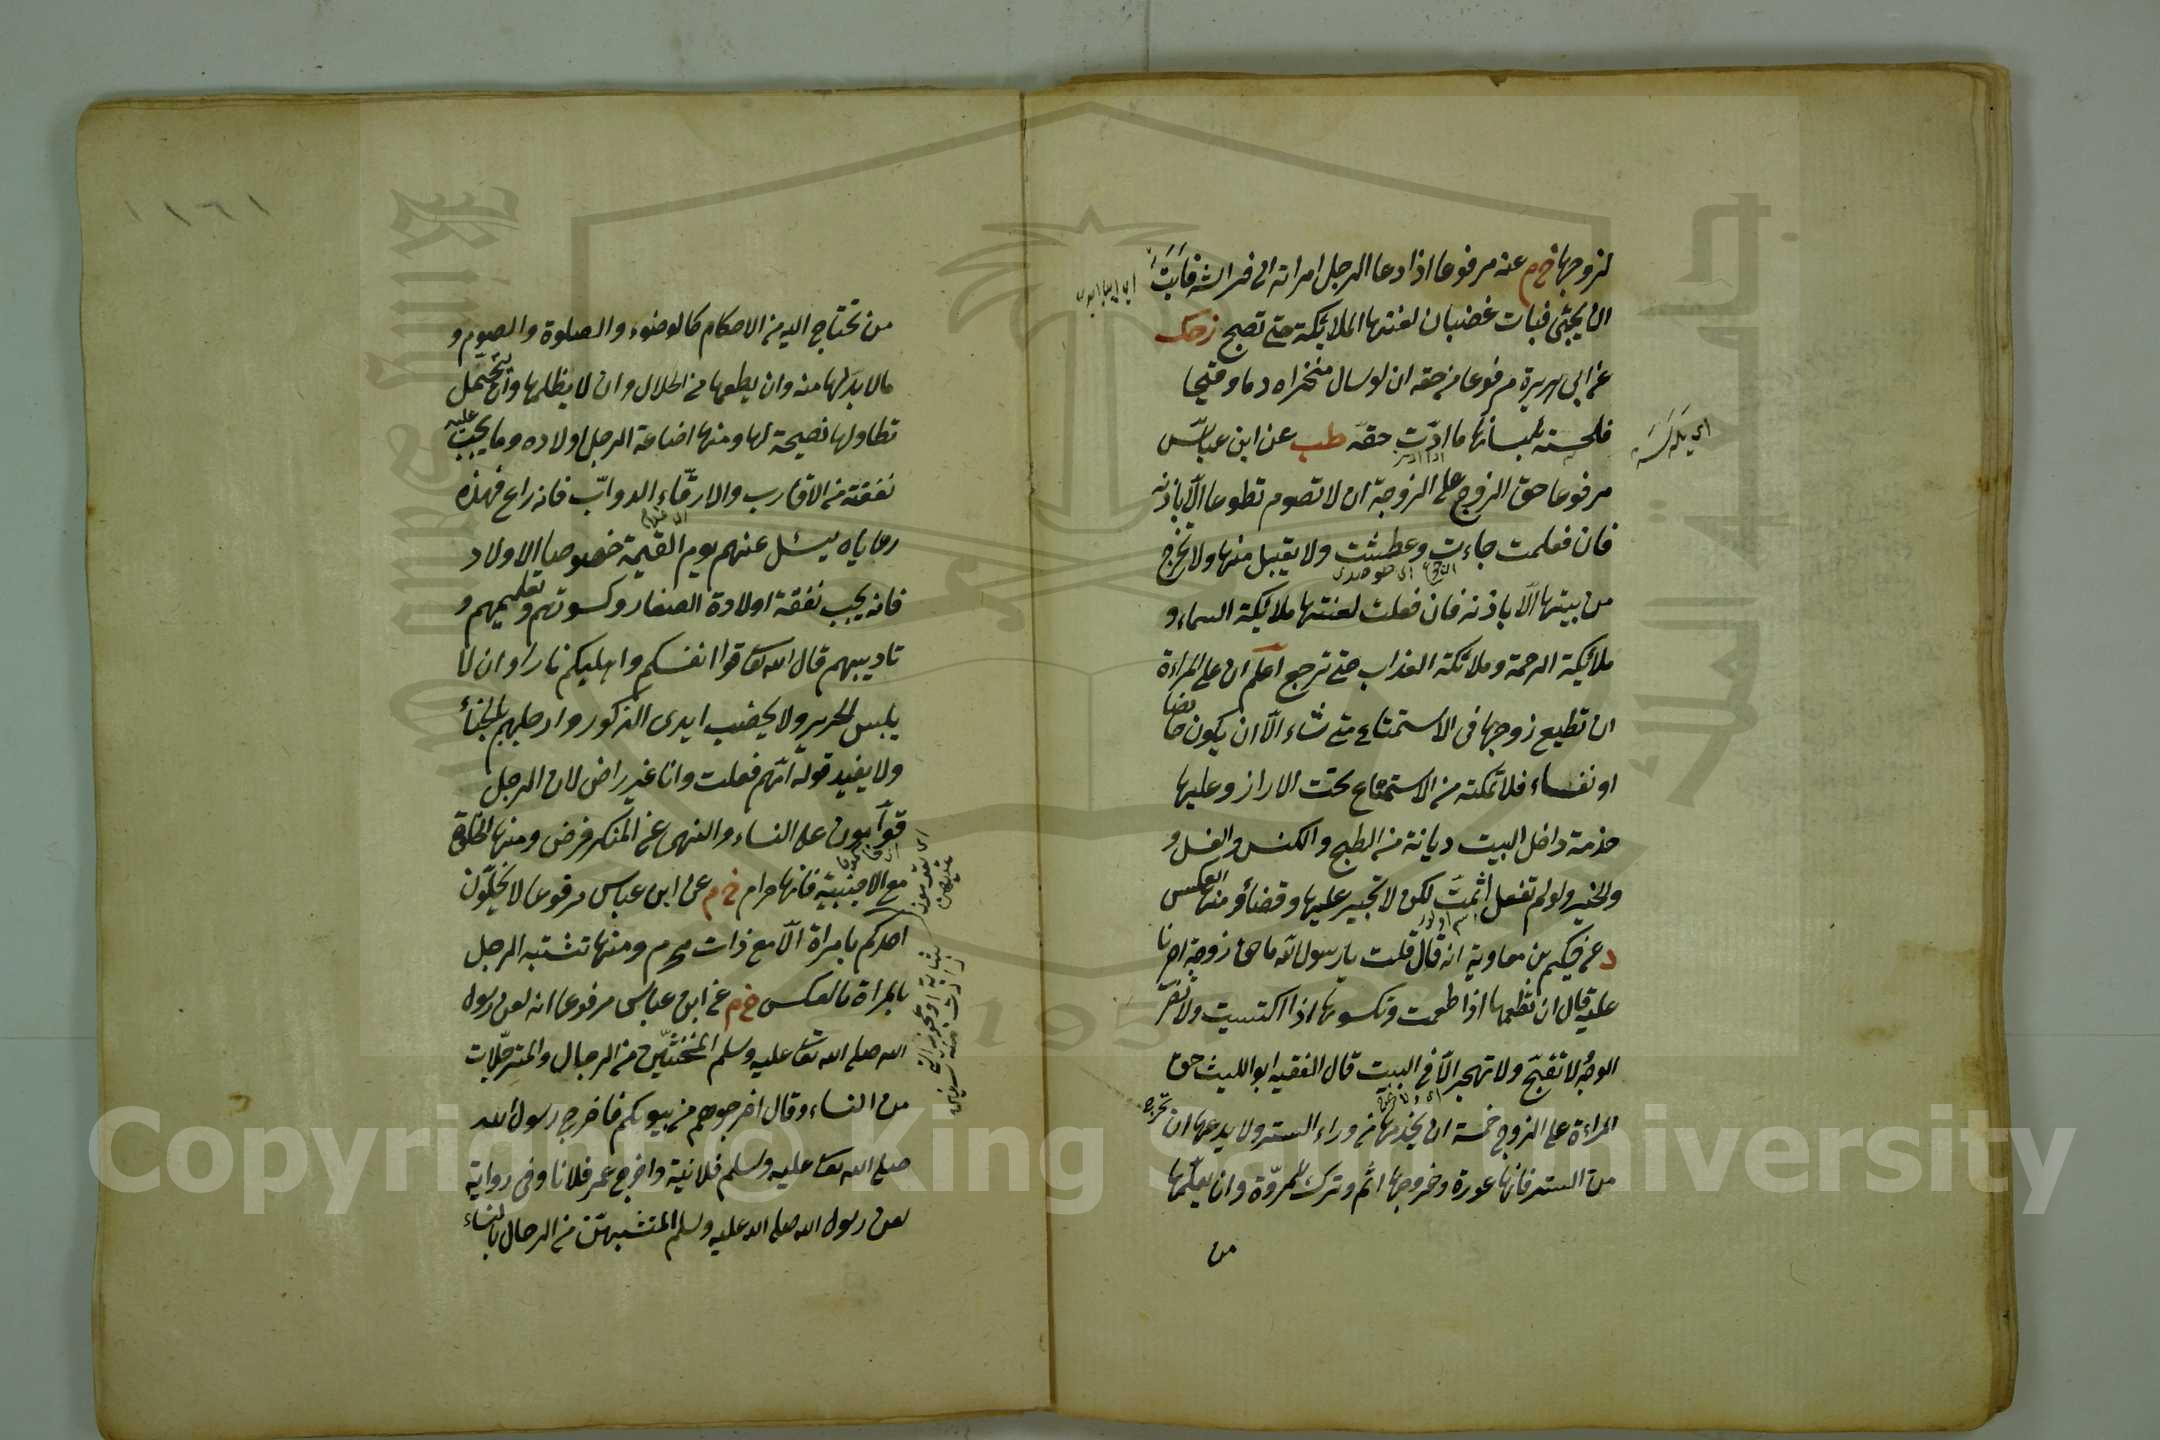 لزوجها خ م عنه مرفوعا اذا دعا الرجل امراته الى فراشه فابت
ان يجئى فبات غضبان لعنتها الملائكة حتى تصبح زحك
عن ابى هريرة مرفوعا من حقه ان لو سال منخراه دما وقيحا
فلحسته بلسانها ما ادّت حقّه طب عن ابن عباس
مرفوعا حق الزوج على الزوجة ان لا تصوم تطوعا الّا باذنه
فان فعلت جاءت وعطشت ولا يقبل منها ولا تخرج
من بيتها الّا باذنه فان فعلت لعنتها ملائكة السماء و
ملائكة الرحمة وملائكة العذاب حتى ترجع اعلم ان على المراءة
ان تطيع زوجها فى الاستمتاع متى شاء الّا ان يكون حائضا
او نفساء فلا تمكنه من الاستمتاع تحت الازار وعليها
خدمة داخل البيت ديانة من الطبخ والكنس والغسل و
والخبز ولو لم تفعل اثمت لكن لا تجبر عليها وقضاء ومنها العكس
د عن حكيم بن معاوية انه قال قلت يا رسول الله ما حق زوجة احدنا
عليه قال ان تطعمها اذا طعمت وتكسوها اذا اكتسيت ولا تضرب
الوجه لا تقبّح ولا تهجر الّا فى البيت قال الفقيه ابو الليث حق
المراءة على الزوج خمسة ان يخدمها من وراء الستر ولا يدعها ان تخرج
من الستر فانها عورة وخروجها اثم وترك للمروّة وان يعلّمها
من
من تحتاج اليه من الاحكام كالوضوء والصلوة والصوم و
مالا بد لها منه وان يطعمها من الحلال وان لا يظلمها وان يتحمّل
تطاولها نصيحة لها ومنها اضاعة الرجل اولاده وما يجب عليه
نفقته من الاقارب والارقّاء الدوابّ فانه راع فهذه
رعاياه يسئل عنهم يوم القيمة خصوصا الاولاد
فانه يجب نفقة اولادة الصغار وكسوتهم وتعليمهم و
تاديبهم قال الله تعا قوا انفسكم واهليكم نارا وان لا
يلبس الحرير ولا يخضب ايدى الذكور وارجلهم بالحنأ
ولا يفيد قوله انهم فعلت وانا غير راض لان الرجل
قوّامون على النساء والنهى عن المنكر فرض ومنها الخلوة
مع الاجنبية فانها حرام خ م عن ابن عباس مرفوعا لا يخلوّن
احدكم بامراة الّا مع ذات محرم ومنها تشبه الرجل
بالمراة بالعكس خ م عن ابن عباس مرفوعا انه لعن رسول
الله صلى الله تعا عليه وسلم المخنّثين من الرجال والمترجّلات
من النساء وقال اخرجوهم من بيوتكم فاخرج رسول الله
صلى الله تعا عليه وسلم فلانة واخرج عمر فلانا وفى رواية
لعن رسول الله صلى الله عليه وسلم المتشبهين من الرجال بالنساء
Copyright © King Saud University